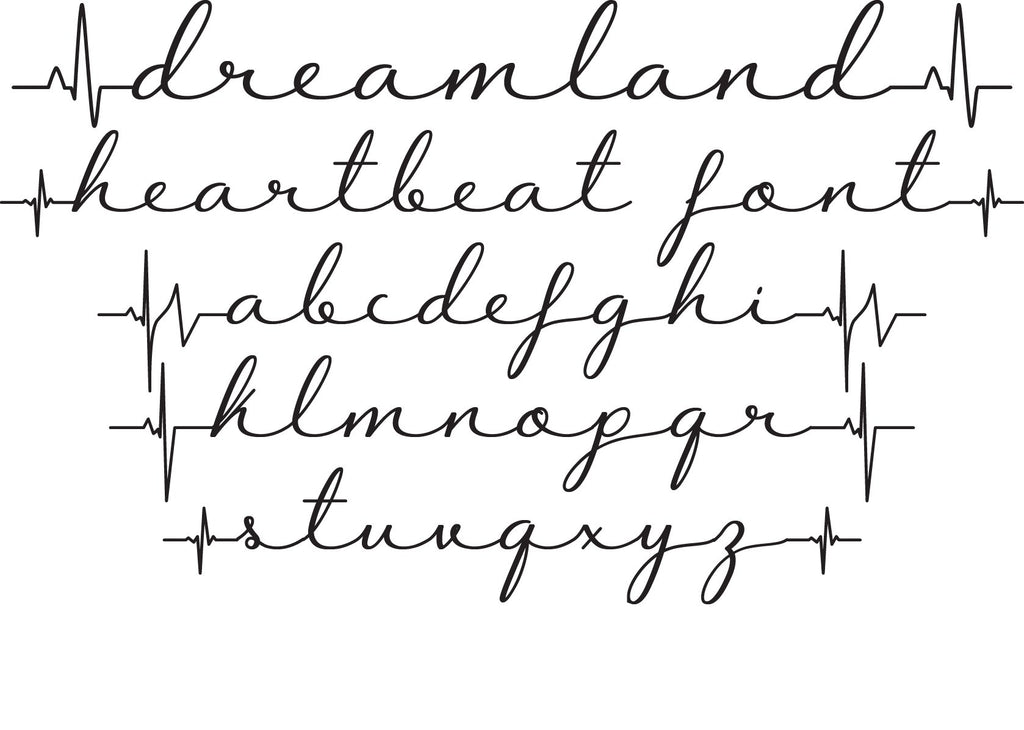 dreamland
heartbeat font
abcdefghi
klmnopqr
stuvqxyz